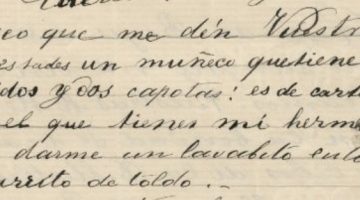 eo que me dén Vuestr
estades un muñeco que tiene
dos y dos capotas: es de cart
el que tienes mi herm
darme un lavabito ento
rrito de toldo.-